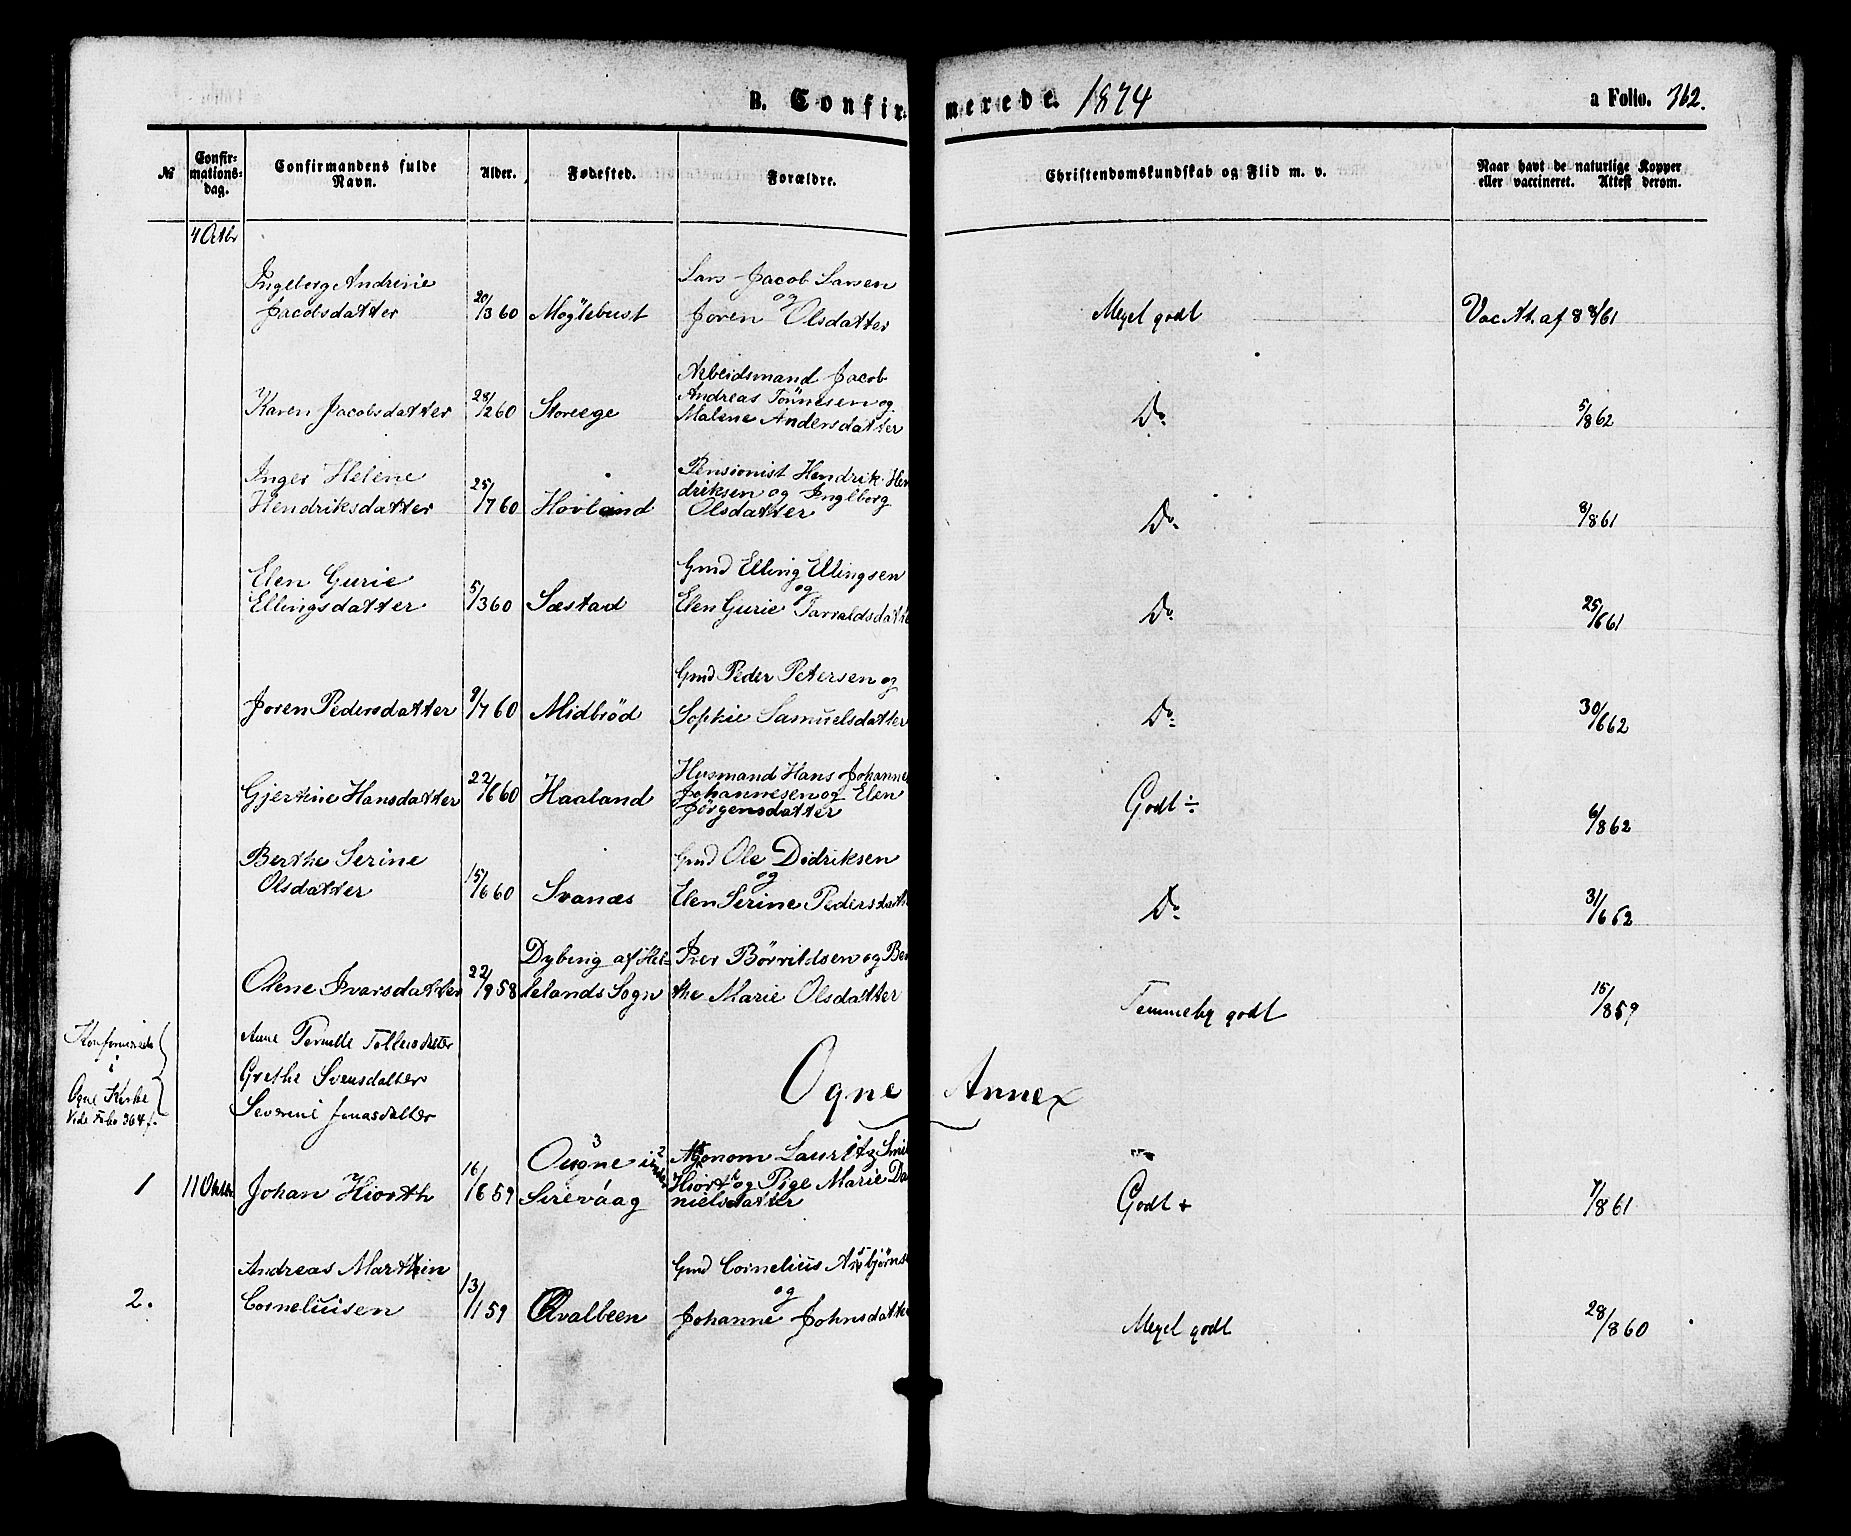 B. Confirmerede. 1874
a Folio. 362.
№
Confirmations-dag.
Confirmandens fulde Navn.
Alder.
Fødested.
Forældre.
Christendomskundskab og Flid m. v.
Naar havt de naturlige Kopper eller vaccineret. Attest derom.
4 Octbr
Ingeborg Andrine
Jacobsdatter
20/3 60
Møglebust
Lars Jacob Larsen
og
Joren Olsdatter
Meget godt
Vac At. af 8 8/61
Karen Jacobsdatter
28/2 60
Storeege
Arbeidsmand Jacob
Andreas Tönnesen og
Malene Andersdatter
Do
5/8 62
Inger Helene
Hendriksdatter
25/7 60
Hovland
Pensionist Hendrik Hen
driksen og Ingborg
Olsdatter
Do
8/8 61
Elen Gurie
Ellingsdatter
5/3 60
Sæstad
Gmd Elling Ellingsen
og
Elen Gurie Tarraldsdatte
Do
25/6 61
Joren Pedersdatter
9/7 60
Midbrød
Gmd Peder Petersen og
Sophie Samuelsdatter
Do
30/6 62
Gjertine Hansdatter
22/6 60
Haaland
Husmand Hans Johannes
Johannesen og Elen
Jörgensdatter
Godt ÷
6/8 62
Berthe Serine
Olsdatter
15/6 60
Svanæs
Gmd Ole Didriksen
og
Elen Serine Pedersdatte
Do
31/6 62
Olene Ivarsdatter
22/9 58
Dybing af Hel-
lelands Sogn
Iver Børrildsen og Ber
the Marie Olsdatter
Temmelig godt
15/8 59
Konfirmerede
i
Ogne Kirke
Vide Folio 364
Anne Pernille Tollevsdatter
Grethe Svensdatter
Severine Jonasdatter
Ogne Annex
1
11 Octbr
Johan Hiorth
16/6 59
Ougne i
Sirevaag
Agonom Lauritz Smi
Hiorth og Pige Marie Da
nielsdatter
Godt +
7/8 61
2.
Andreas Marthin
Corneliusen
13/1 59
Qvalbeen
Gmd Cornelius Asbjørns
og
Johanne Johnsdatte
Meget godt
28/8 60